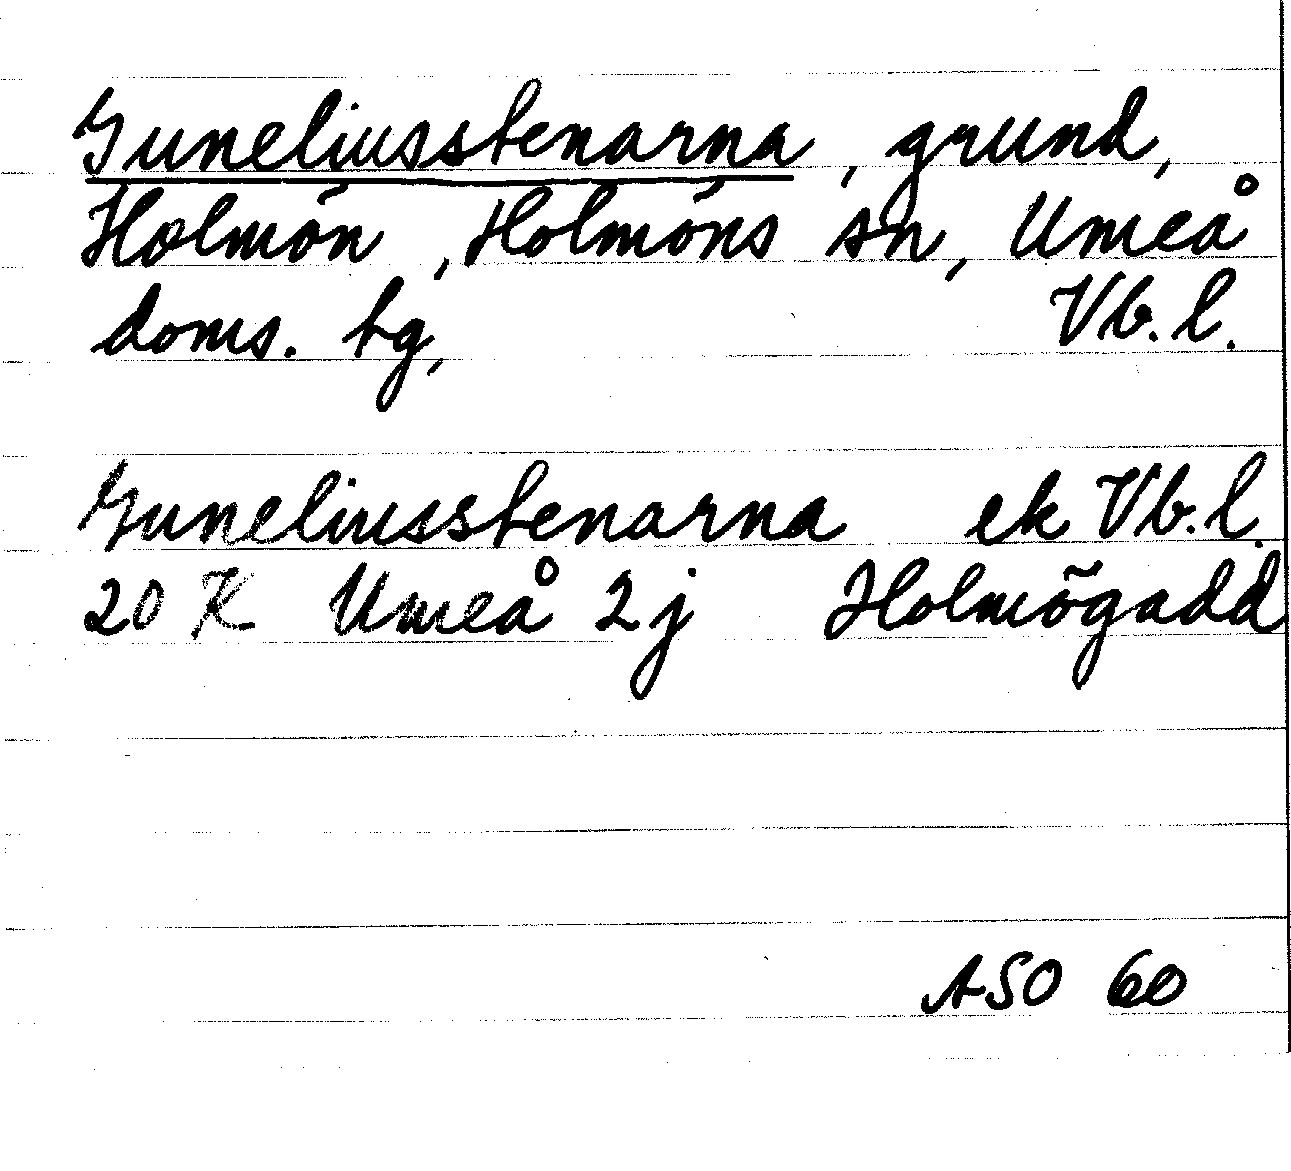 Guneliusstenarna, grund,
Holmön, Holmöns sn, Umeå
doms. tg, Vb. l.
Guneliusstenarna ek Vb. l.
20 K Umeå 2j Holmögadd
ASO 60